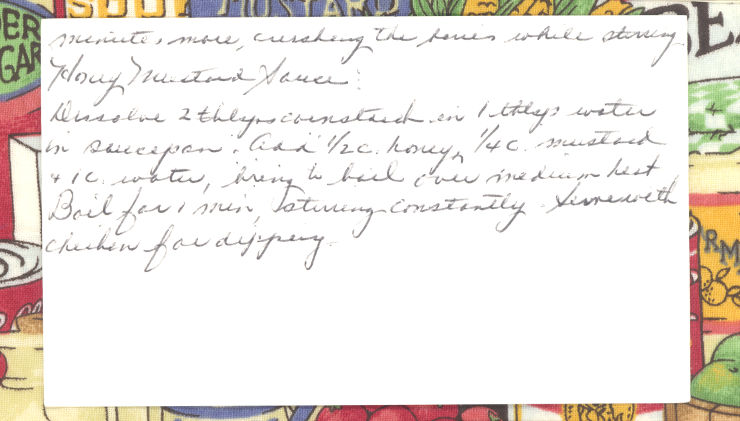 SOUP
MUSTARD
minutes more, crushing the bones while stirring
Honey Mustard Sauce:
Dissolve 2 tblsps cornstarch in 1 tblsp water
in saucepan. Add 1/2 c. honey, 1/4 c. mustard
+ 1 c. water, bring to boil over medium heat
Boil for 1 min, stirring constantly. Serve with
chicken for dipping.